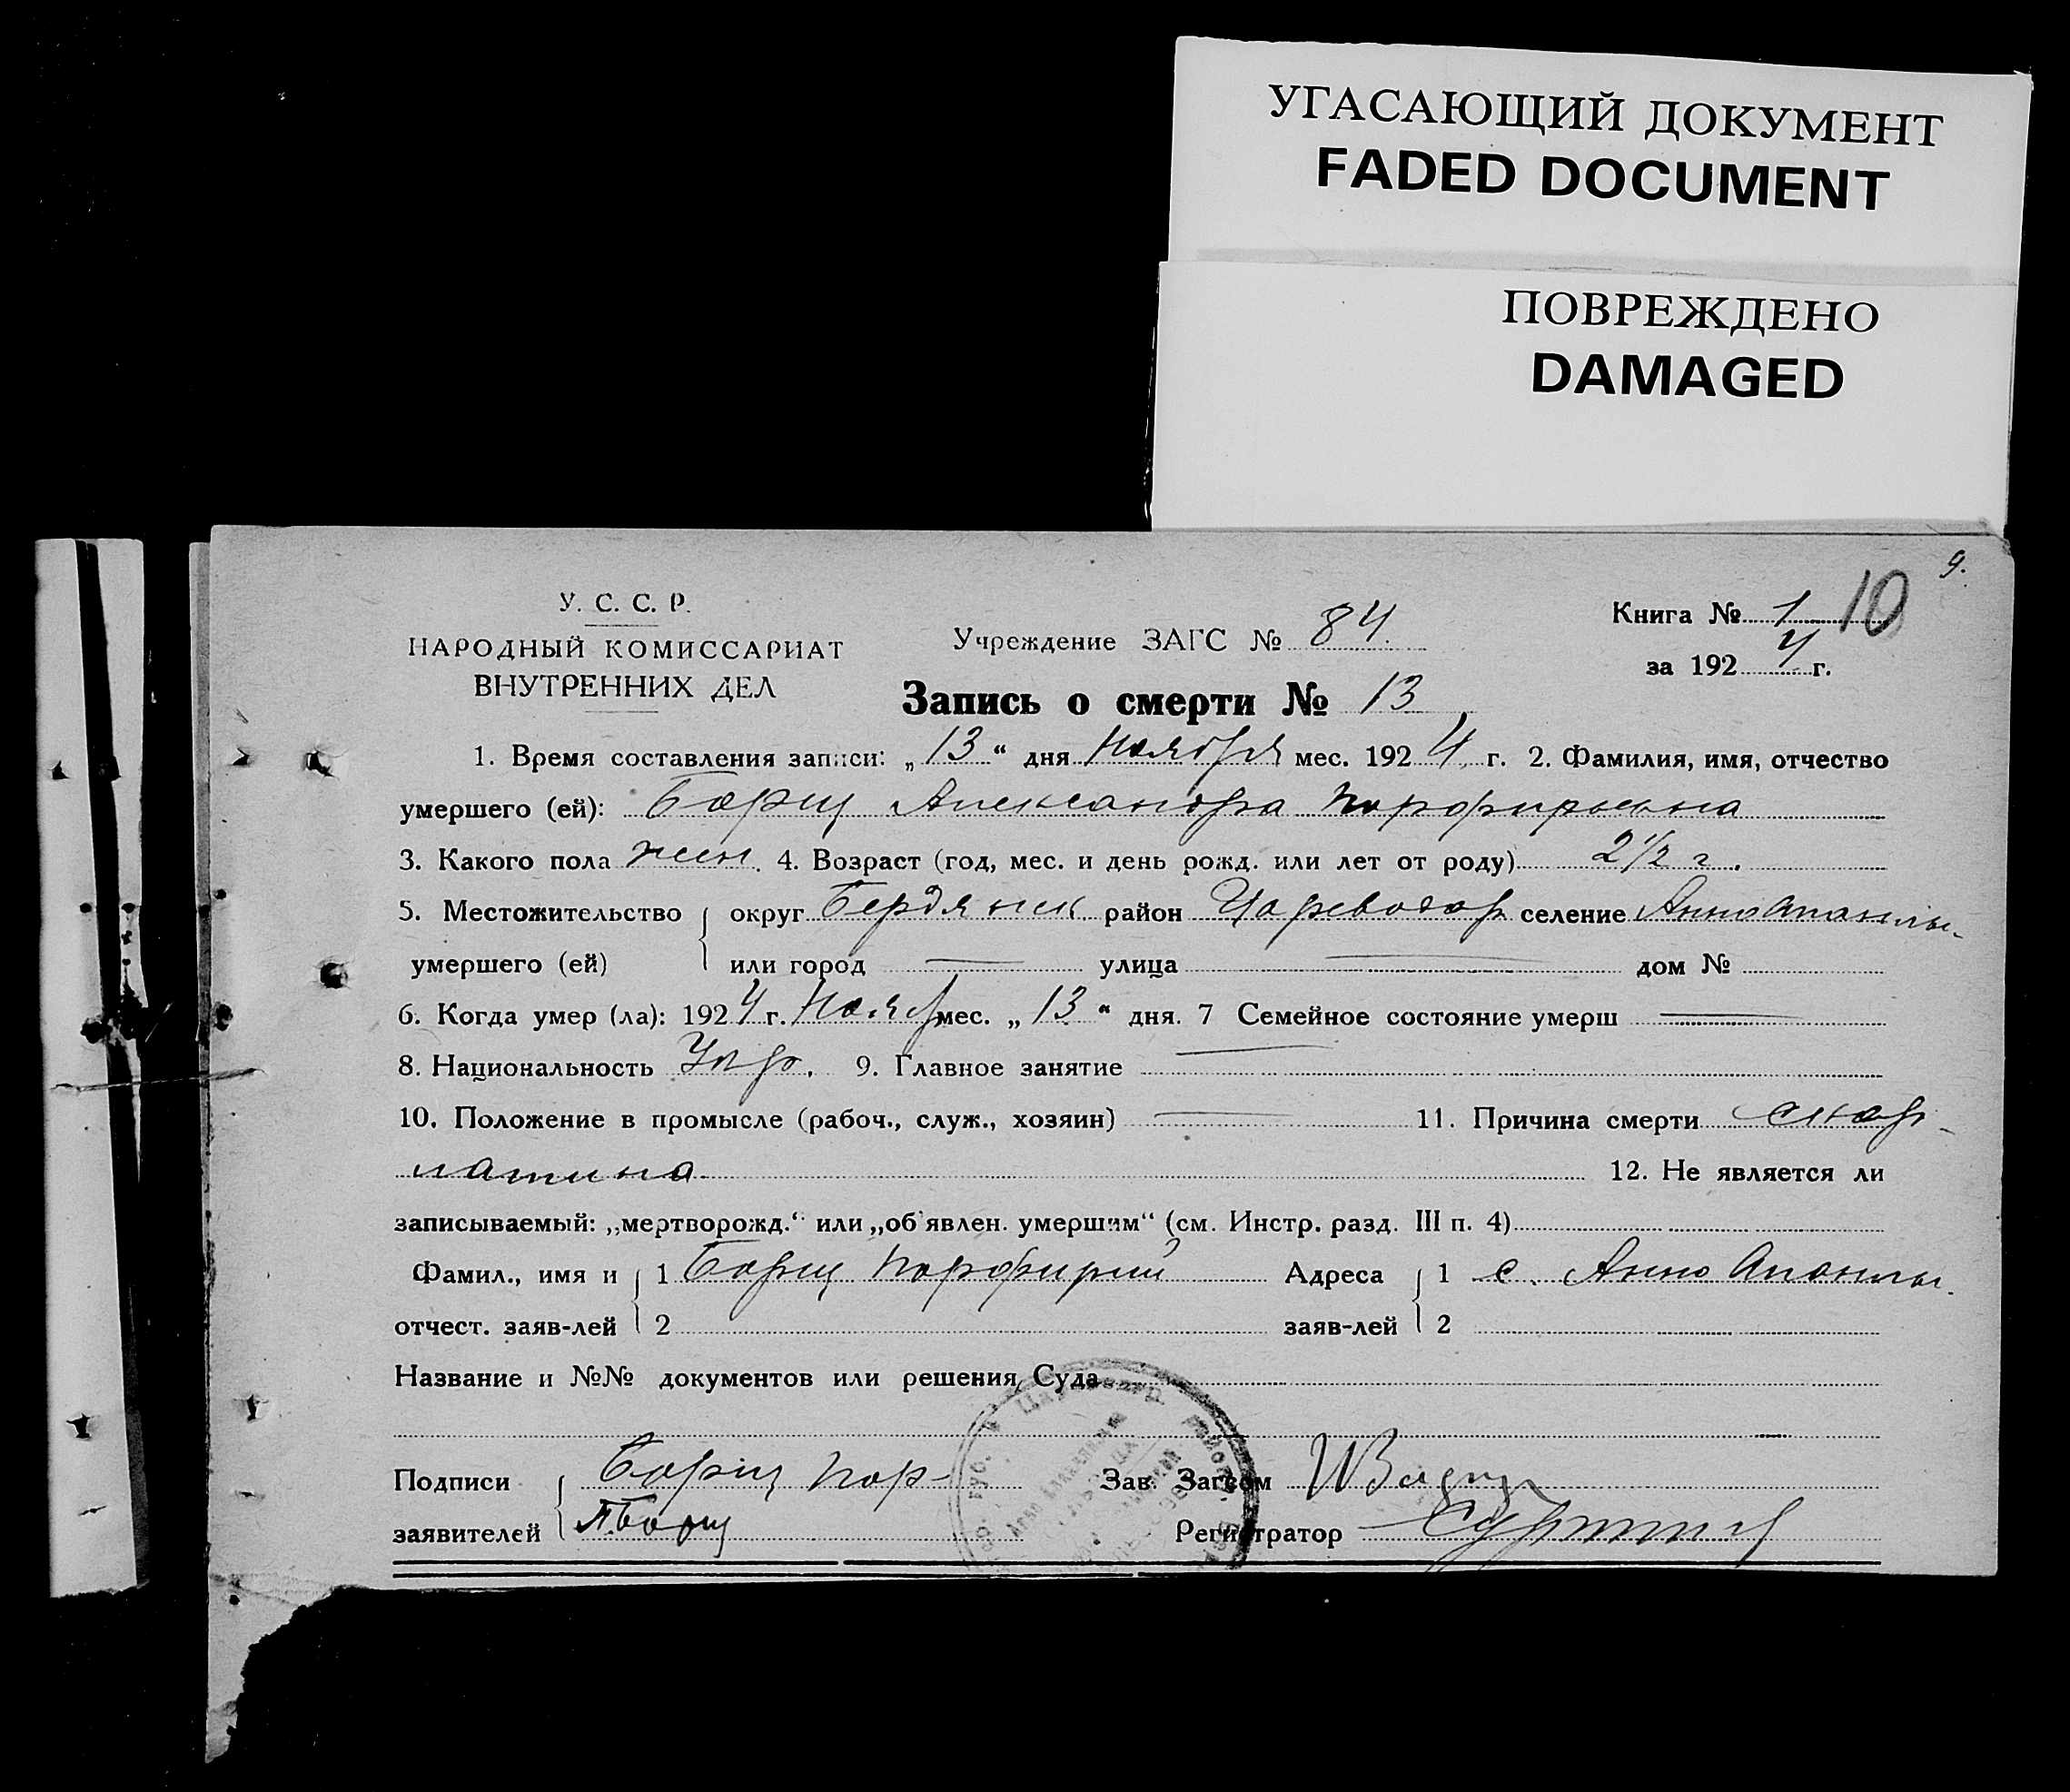 УГАСАЮЩИЙ ДОКУМЕНТ
FADED DOCUMENT
ПОВРЕЖДЕНО
DAMAGED
9.
10
У. С. С. Р.
НАРОДНЫЙ КОМИССАРИАТ
ВНУТРЕННИХ ДЕЛ
Учреждение ЗАГС № 84
Книга № 1
за 1924 г.
Запись о смерти № 13
1. Время составления записи: „13“ дня Ноября мес. 1924 г. 2. Фамилия, имя, отчество
умершего (ей): Борщ Александра Порфирьевна
3. Какого пола жен. 4. Возраст (год, мес. и день рожд. или лет от роду) 2 1/2 г.
5. Местожительство округ Бердянск район Царевогор селение Анно Опанлы-
умершего (ей) или город — улица — дом №
6. Когда умер (ла): 1924 г. Нояб мес. „13“ дня. 7 Семейное состояние умерш —
8. Национальность Укр. 9. Главное занятие —
10. Положение в промысле (рабоч., служ., хозяин) — 11. Причина смерти скар-
латина 12. Не является ли
записываемый: „мертворожд.“ или „об'явлен. умершим“ (см. Инстр. разд. III п. 4)
Фамил., имя и 1 Борщ Порфирий Адреса 1 с. Анно Опанлы.
отчест. заяв-лей 2 заяв-лей 2
Название и №№ документов или решения Суда
Подписи Борщ Пор- Зав. Загсом
заявителей П. Борщ Регистратор